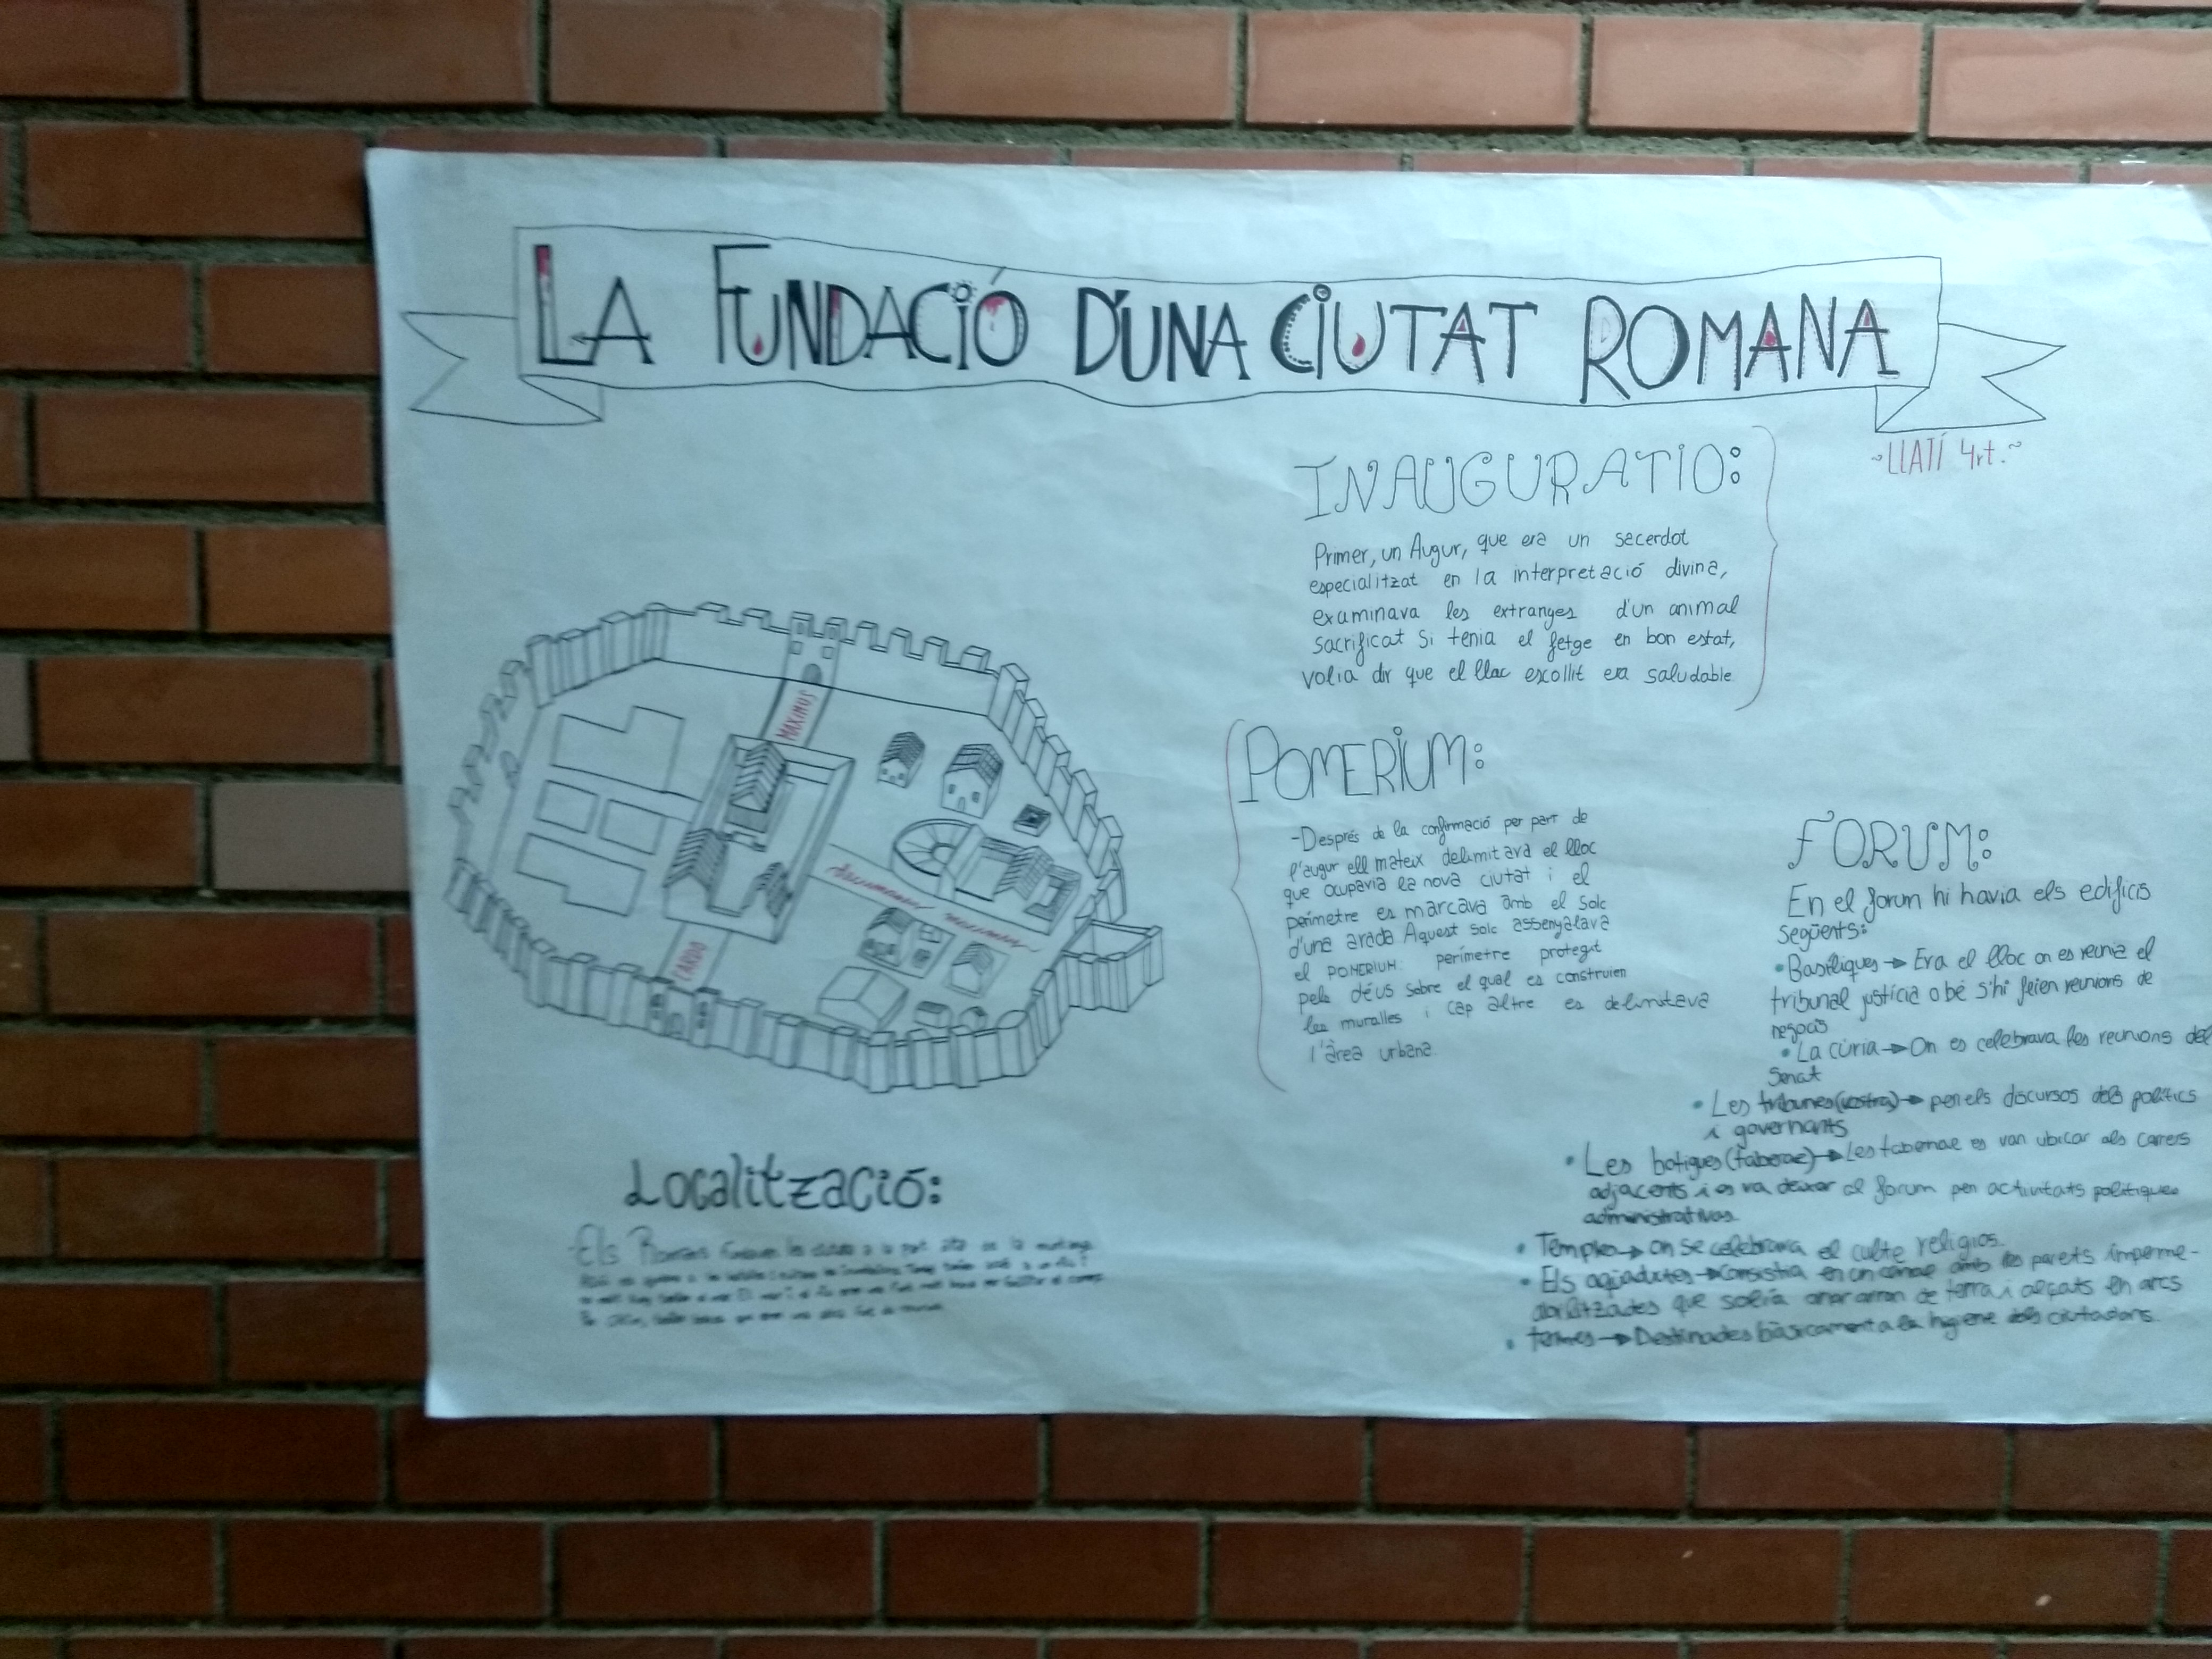 LA FUNDACIÓ D'UNA CIUTAT ROMANA
~LLATÍ 4rt.~
INAUGURATIO:
Primer, un Augur, que era un sacerdot
especialitzat en la interpretació divina,
examinava les extranges d'un animal
sacrificat Si tenia el fetge en bon estat,
volia dir que el lloc escollit era saludable
POMERIUM:
-Després de la confirmació per part de
l'augur ell mateix delimitava el lloc
que ocuparia la nova ciutat i el
perímetre es marcava amb el solc
d'una arada Aquest solc assenyalava
el POMERIUM: perímetre protegit
pels déus sobre el qual es construien
les muralles i cap altre es delimitava
l'àrea urbana.
FORUM:
En el forum hi havia els edificis
següents:
•Basíliques→ Era el lloc on es reunia el
tribunal justícia o bé s'hi feien reunions de
negocis
•La cúria→On es celebrava les reunions del
Senat
• Les tribunes(rostra)→ per els discursos dels polítics
i governants
• Les botigues(taberae)→Les tabernae es van ubicar als carrers
adjacents i es va deixar al forum per activitats polítiques
administratives.
• Temples→ on se celebrava el culte religiós.
• Els aqüaductes→consistia en un canal amb les parets imperme-
abilitzades que solia anar arran de terra i alçats en arcs
• termes→Destinades bàsicament a la higiene dels ciutadans.
MAXIMUS
CARDO
Localització:
-Els Romans